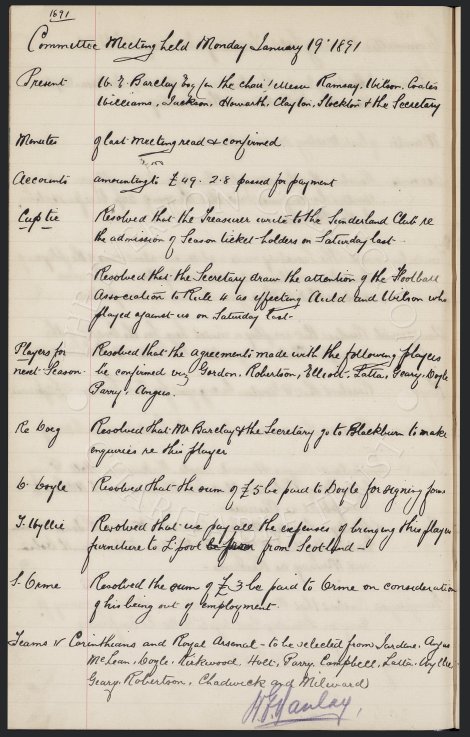 1891
Committee Meeting held Monday January 19th 1891
Present W. E. Barclay Esq (in the chair) Messrs Ramsay, Wilson, Coates
Williams, Jackson, Howarth, Clayton, Stockton & the Secretary
Minutes of last meeting read & confirmed
Accounts amounting to £49. 2. 8 passed for payment
Cup tie Resolved that the Treasurer write to the Sunderland Club re
the admission of Season ticket holders on Saturday last
Resolved that the Secretary draw the attention of the Football
Association to Rule 4 as effecting Auld and Wilson who
played against us on Saturday last
Players for Resolved that the agreements made with the following players
next Season be confirmed viz Gordon, Robertson, Elliott, Latta, Geary, Doyle
Parry, Angus.
Resolved that Mr Barclay & the Secretary go to Blackburn to make
enquiries re this player
Doyle Resolved that the sum of £5 be paid to Doyle for signing form
T. Wyllie Resolved that we pay all the expenses of bringing this player
furniture to L'pool from Scotland
S. Orme Resolved the sum of £3 be paid to Orme on consideration
of his being out of employment
Teams v Corinthians and Royal Arsenal - to be selected from Jardine, Angus
McLean, Doyle, Kirkwood, Holt, Parry, Campbell, Latta, Wyllie
Geary, Robertson, Chadwick and Milward